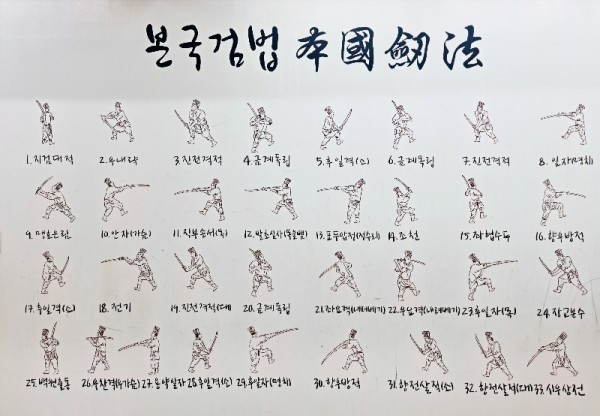 본국검법 本國劒法
1. 지검대적 2. 우내략 3. 진전격적 4. 금계독립 5. 후일격(소) 6. 금계독립 7. 진전격적 8. 일자(명치)
9. 맹호은림 10. 안자(가슴) 11. 직부송서(목) 12. 발초심사 13. 표두압정(정수리) 14. 조천 15. 좌협수두 16. 향우방적
17. 후일격(소) 18. 전기 19. 진전격적(대) 20. 금계독립 21. 좌요격(내려베기) 22. 우요격(내려베기) 23. 후일자(목) 24. 장교분수
25. 백원출동 26. 우찬격(우가슴) 27. 용약일자 28. 후일격(소) 29. 후일자(명치) 30. 향후방적 31. 향전살적(소) 32. 향전살적(대) 33. 시우상전